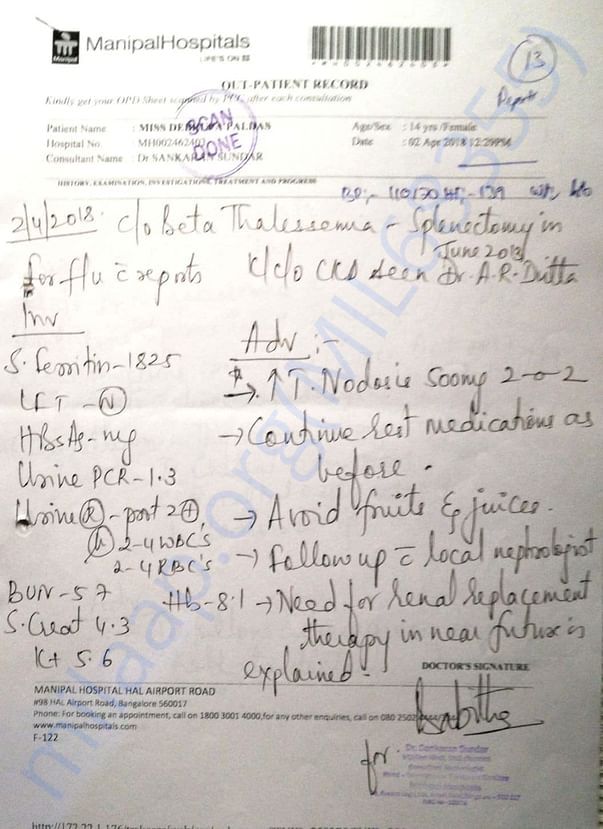 ManipalHospitals
LIFE'S ON
Manipal
13
Reports
OUT-PATIENT RECORD
Kindly get your OPD Sheet scanned by PCC after each consultation
SCAN DONE
Patient Name : MISS PALDAS Age/Sex : 14 yrs /Female
Hospital No. : Date : 02 Apr 2018 12:29PM
Consultant Name : Dr SANKARAN SUNDAR
HISTORY, EXAMINATION, INVESTIGATIONS, TREATMENT AND PROGRESS
BP:- 110/70 Ht:-139
2/4/2018. c/o Beta Thalessemia - Splenectomy in
June 2013
for flu c̄ reports K/c/o CKD seen Dr. A.R. Dutta
Inv
Adv :-
S. Ferritin - 1825
→ ↑ T. Nodosis 500mg 2-0-2
LFT - (N)
HBsAg - neg → Continue rest medications as
before.
Urine PCR - 1.3
Urine (R) - prot 2+ → Avoid fruits & juices.
2-4 WBC's
→ Follow up c̄ local nephrologist
2-4 RBC's
BUN - 57 Hb - 8.1 → Need for renal replacement
S. Creat 4.3 therapy in near future is
K+ 5.6 explained.
DOCTOR'S SIGNATURE
MANIPAL HOSPITAL HAL AIRPORT ROAD
#98 HAL Airport Road, Bangalore 560017
Phone: For booking an appointment, call on 1800 3001 4000,for any other enquiries, call on 080 2502
www.manipalhospitals.com
F-122
for
Dr. Sankaran Sundar
milaap.org(MIL68355)